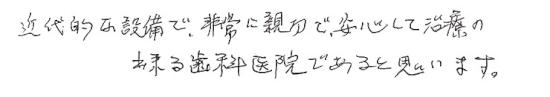 近代的な設備で、非常に親切で、安心して治療の
出来る歯科医院であると思います。